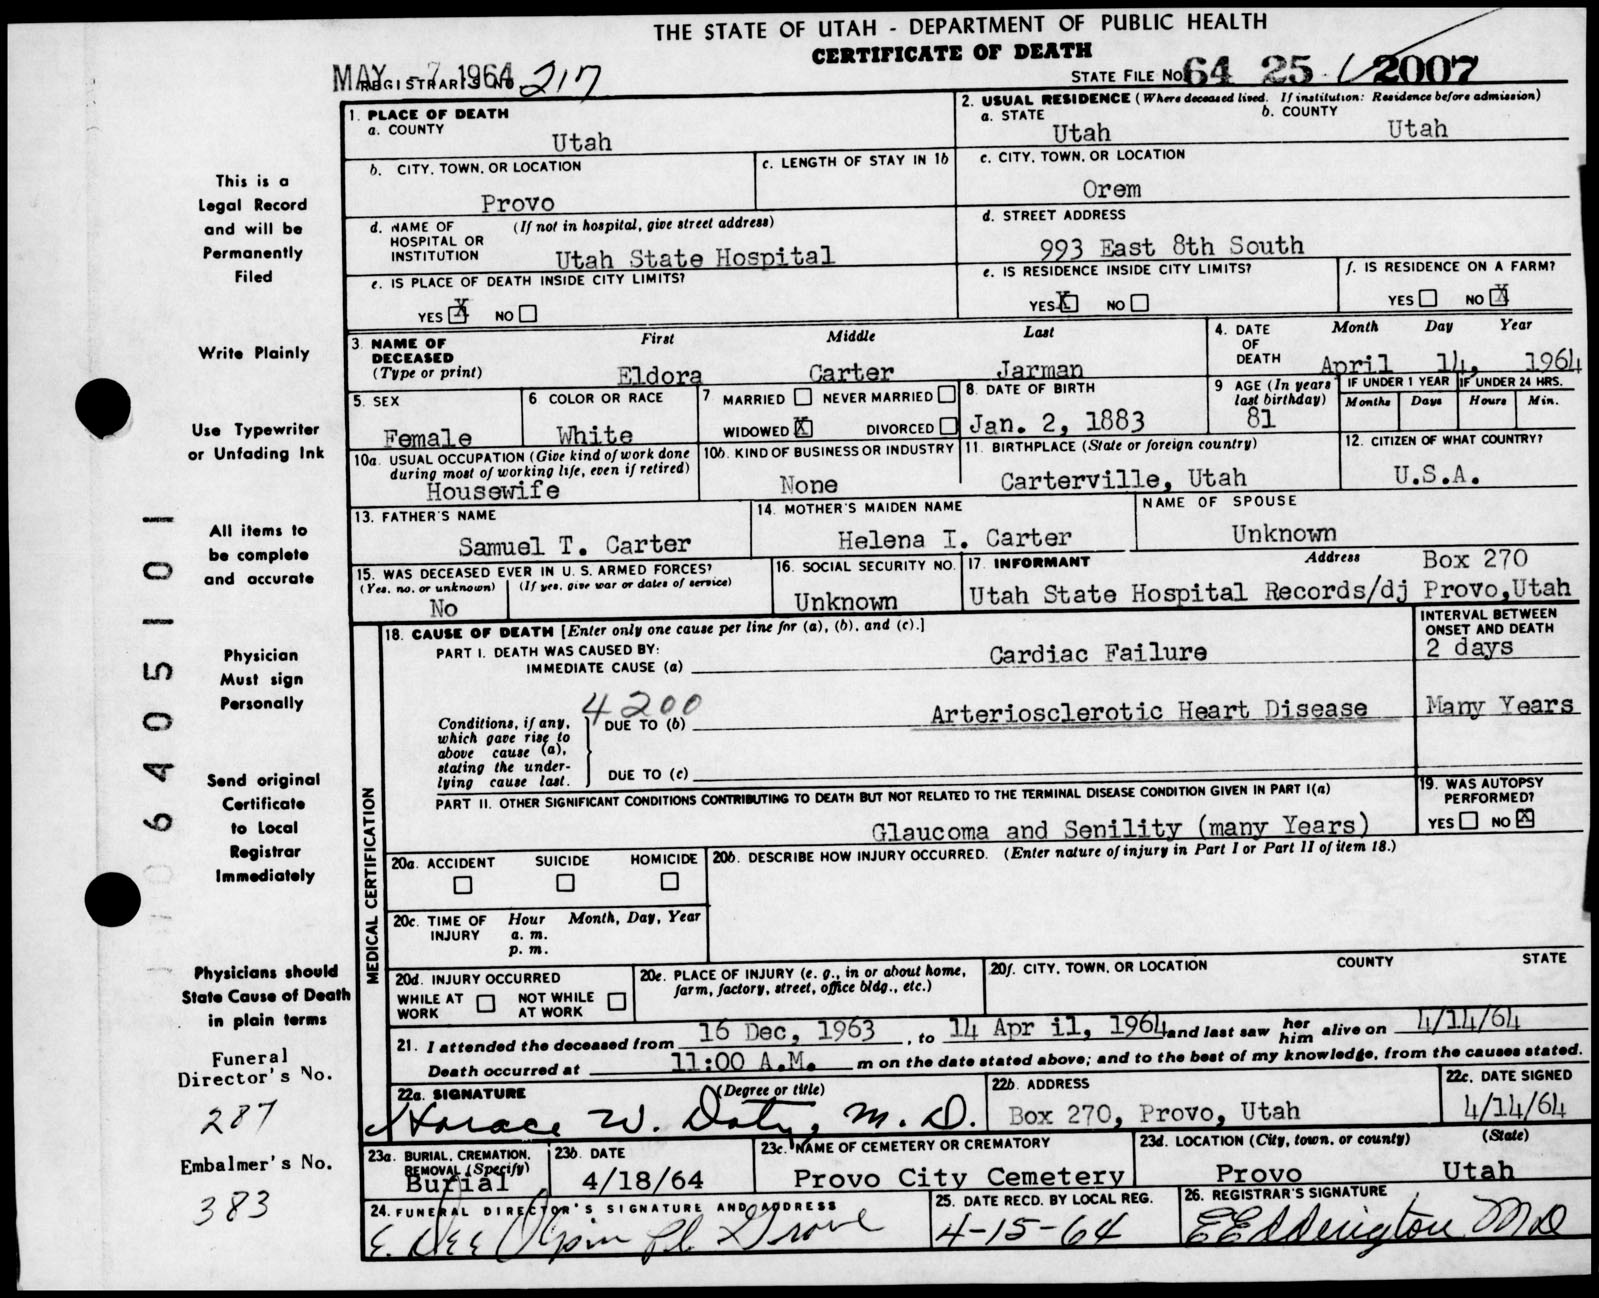 THE STATE OF UTAH - DEPARTMENT OF PUBLIC HEALTH
CERTIFICATE OF DEATH
MAY 7 1964
REGISTRAR'S NO 217
STATE FILE NO. 64 25 2007
This is a
Legal Record
and will be
Permanently
Filed
Write Plainly
Use Typewriter
or Unfading Ink
All items to
be complete
and accurate
Physician
Must sign
Personally
Send original
Certificate
to Local
Registrar
Immediately
Physicians should
State Cause of Death
in plain terms
Funeral
Director's No.
287
Embalmer's No.
383
06405101
1. PLACE OF DEATH
a. COUNTY
Utah
2. USUAL RESIDENCE (Where deceased lived. If institution: Residence before admission)
a. STATE
Utah
b. COUNTY
Utah
b. CITY, TOWN, OR LOCATION
Provo
c. LENGTH OF STAY IN 1b
c. CITY, TOWN, OR LOCATION
Orem
d. NAME OF HOSPITAL OR INSTITUTION
(If not in hospital, give street address)
Utah State Hospital
d. STREET ADDRESS
993 East 8th South
e. IS PLACE OF DEATH INSIDE CITY LIMITS?
YES X NO
e. IS RESIDENCE INSIDE CITY LIMITS?
YES X NO
f. IS RESIDENCE ON A FARM?
YES NO X
3. NAME OF DECEASED (Type or print)
First Middle Last
Eldora Carter Jarman
4. DATE OF DEATH
Month Day Year
April 14, 1964
5. SEX
Female
6 COLOR OR RACE
White
7 MARRIED NEVER MARRIED
WIDOWED X DIVORCED
8. DATE OF BIRTH
Jan. 2, 1883
9 AGE (In years last birthday)
81
IF UNDER 1 YEAR IF UNDER 24 HRS.
Months Days Hours Min.
10a. USUAL OCCUPATION (Give kind of work done during most of working life, even if retired)
Housewife
10b. KIND OF BUSINESS OR INDUSTRY
None
11. BIRTHPLACE (State or foreign country)
Carterville, Utah
12. CITIZEN OF WHAT COUNTRY?
U.S.A.
13. FATHER'S NAME
Samuel T. Carter
14. MOTHER'S MAIDEN NAME
Helena I. Carter
NAME OF SPOUSE
Unknown
15. WAS DECEASED EVER IN U. S. ARMED FORCES?
(Yes, no, or unknown) (If yes, give war or dates of service)
No
16. SOCIAL SECURITY NO.
Unknown
17. INFORMANT Address
Box 270
Utah State Hospital Records/dj Provo,Utah
MEDICAL CERTIFICATION
18. CAUSE OF DEATH [Enter only one cause per line for (a), (b), and (c).]
INTERVAL BETWEEN ONSET AND DEATH
PART I. DEATH WAS CAUSED BY:
IMMEDIATE CAUSE (a) Cardiac Failure 2 days
4200
Conditions, if any,
which gave rise to
above cause (a),
stating the under-
lying cause last.
DUE TO (b) Arteriosclerotic Heart Disease Many Years
DUE TO (c)
PART II. OTHER SIGNIFICANT CONDITIONS CONTRIBUTING TO DEATH BUT NOT RELATED TO THE TERMINAL DISEASE CONDITION GIVEN IN PART I(a)
Glaucoma and Senility (many Years)
19. WAS AUTOPSY PERFORMED?
YES NO X
20a. ACCIDENT SUICIDE HOMICIDE
20b. DESCRIBE HOW INJURY OCCURRED. (Enter nature of injury in Part I or Part II of item 18.)
20c. TIME OF INJURY Hour Month, Day, Year
a. m.
p. m.
20d. INJURY OCCURRED
WHILE AT WORK NOT WHILE AT WORK
20e. PLACE OF INJURY (e. g., in or about home, farm, factory, street, office bldg., etc.)
20f. CITY, TOWN, OR LOCATION COUNTY STATE
21. I attended the deceased from 16 Dec, 1963, to 14 Apr il, 1964 and last saw her him alive on 4/14/64
Death occurred at 11:00 A.M. m on the date stated above; and to the best of my knowledge, from the causes stated.
22a. SIGNATURE (Degree or title)
Horace W. Doty, M.D.
22b. ADDRESS
Box 270, Provo, Utah
22c. DATE SIGNED
4/14/64
23a. BURIAL, CREMATION, REMOVAL (Specify)
Burial
23b. DATE
4/18/64
23c. NAME OF CEMETERY OR CREMATORY
Provo City Cemetery
23d. LOCATION (City, town, or county) (State)
Provo Utah
24. FUNERAL DIRECTOR'S SIGNATURE AND ADDRESS
E. Dee Olpin Pl. Grove
25. DATE RECD. BY LOCAL REG.
4-15-64
26. REGISTRAR'S SIGNATURE
EEddington MD